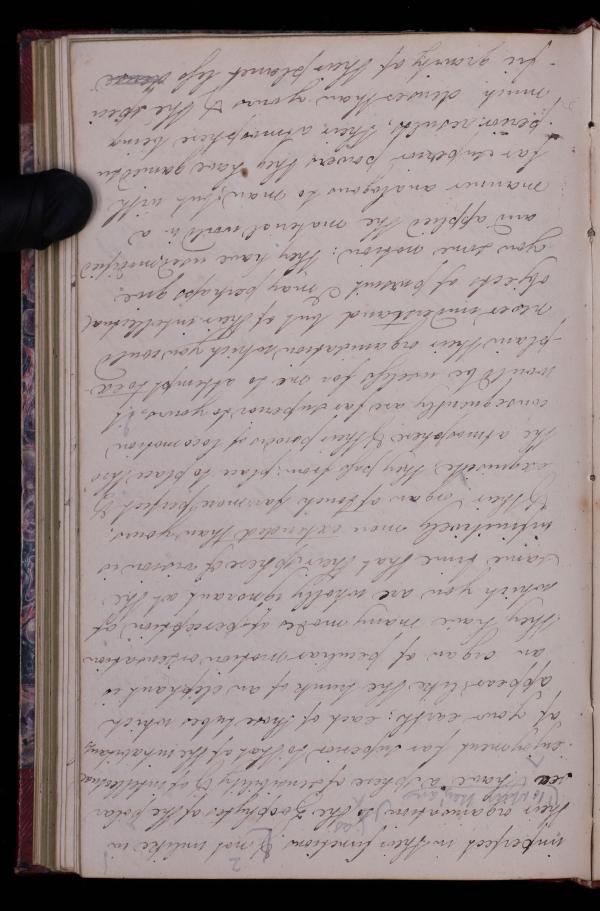 imperfect in their functions & not unlike in
their organisation to the Zoophytes of the polar
sea have a sphere of sensibility & of intellectual
enjoyment far superior to that of the inhabitants
of your earth; each of those tubes which
appears like the trunk of an elephant is
an organ of peculiar motion or sensation
they have many modes of perception of
which you are wholly ignorant at the
same time that their sphere of vision is
infinitively more extended than yours
& their organ of touch far more perfect &
exquisite. they pass from place to place thro
the atmosphere & their powers of locomotion
consequently are far superior to yours. it
would be useless for me to attempt to ex-
-plain their organization which you could
never understand but of their intellectual
objects of pursuit I may perhaps give
you some notion: they have used, modified
and applied the material world in a
manner analogous to man; but with
far superior powers they have gained su
perior results, their atmosphere being
much denser than yours & the speci
-fic gravity of their planet less